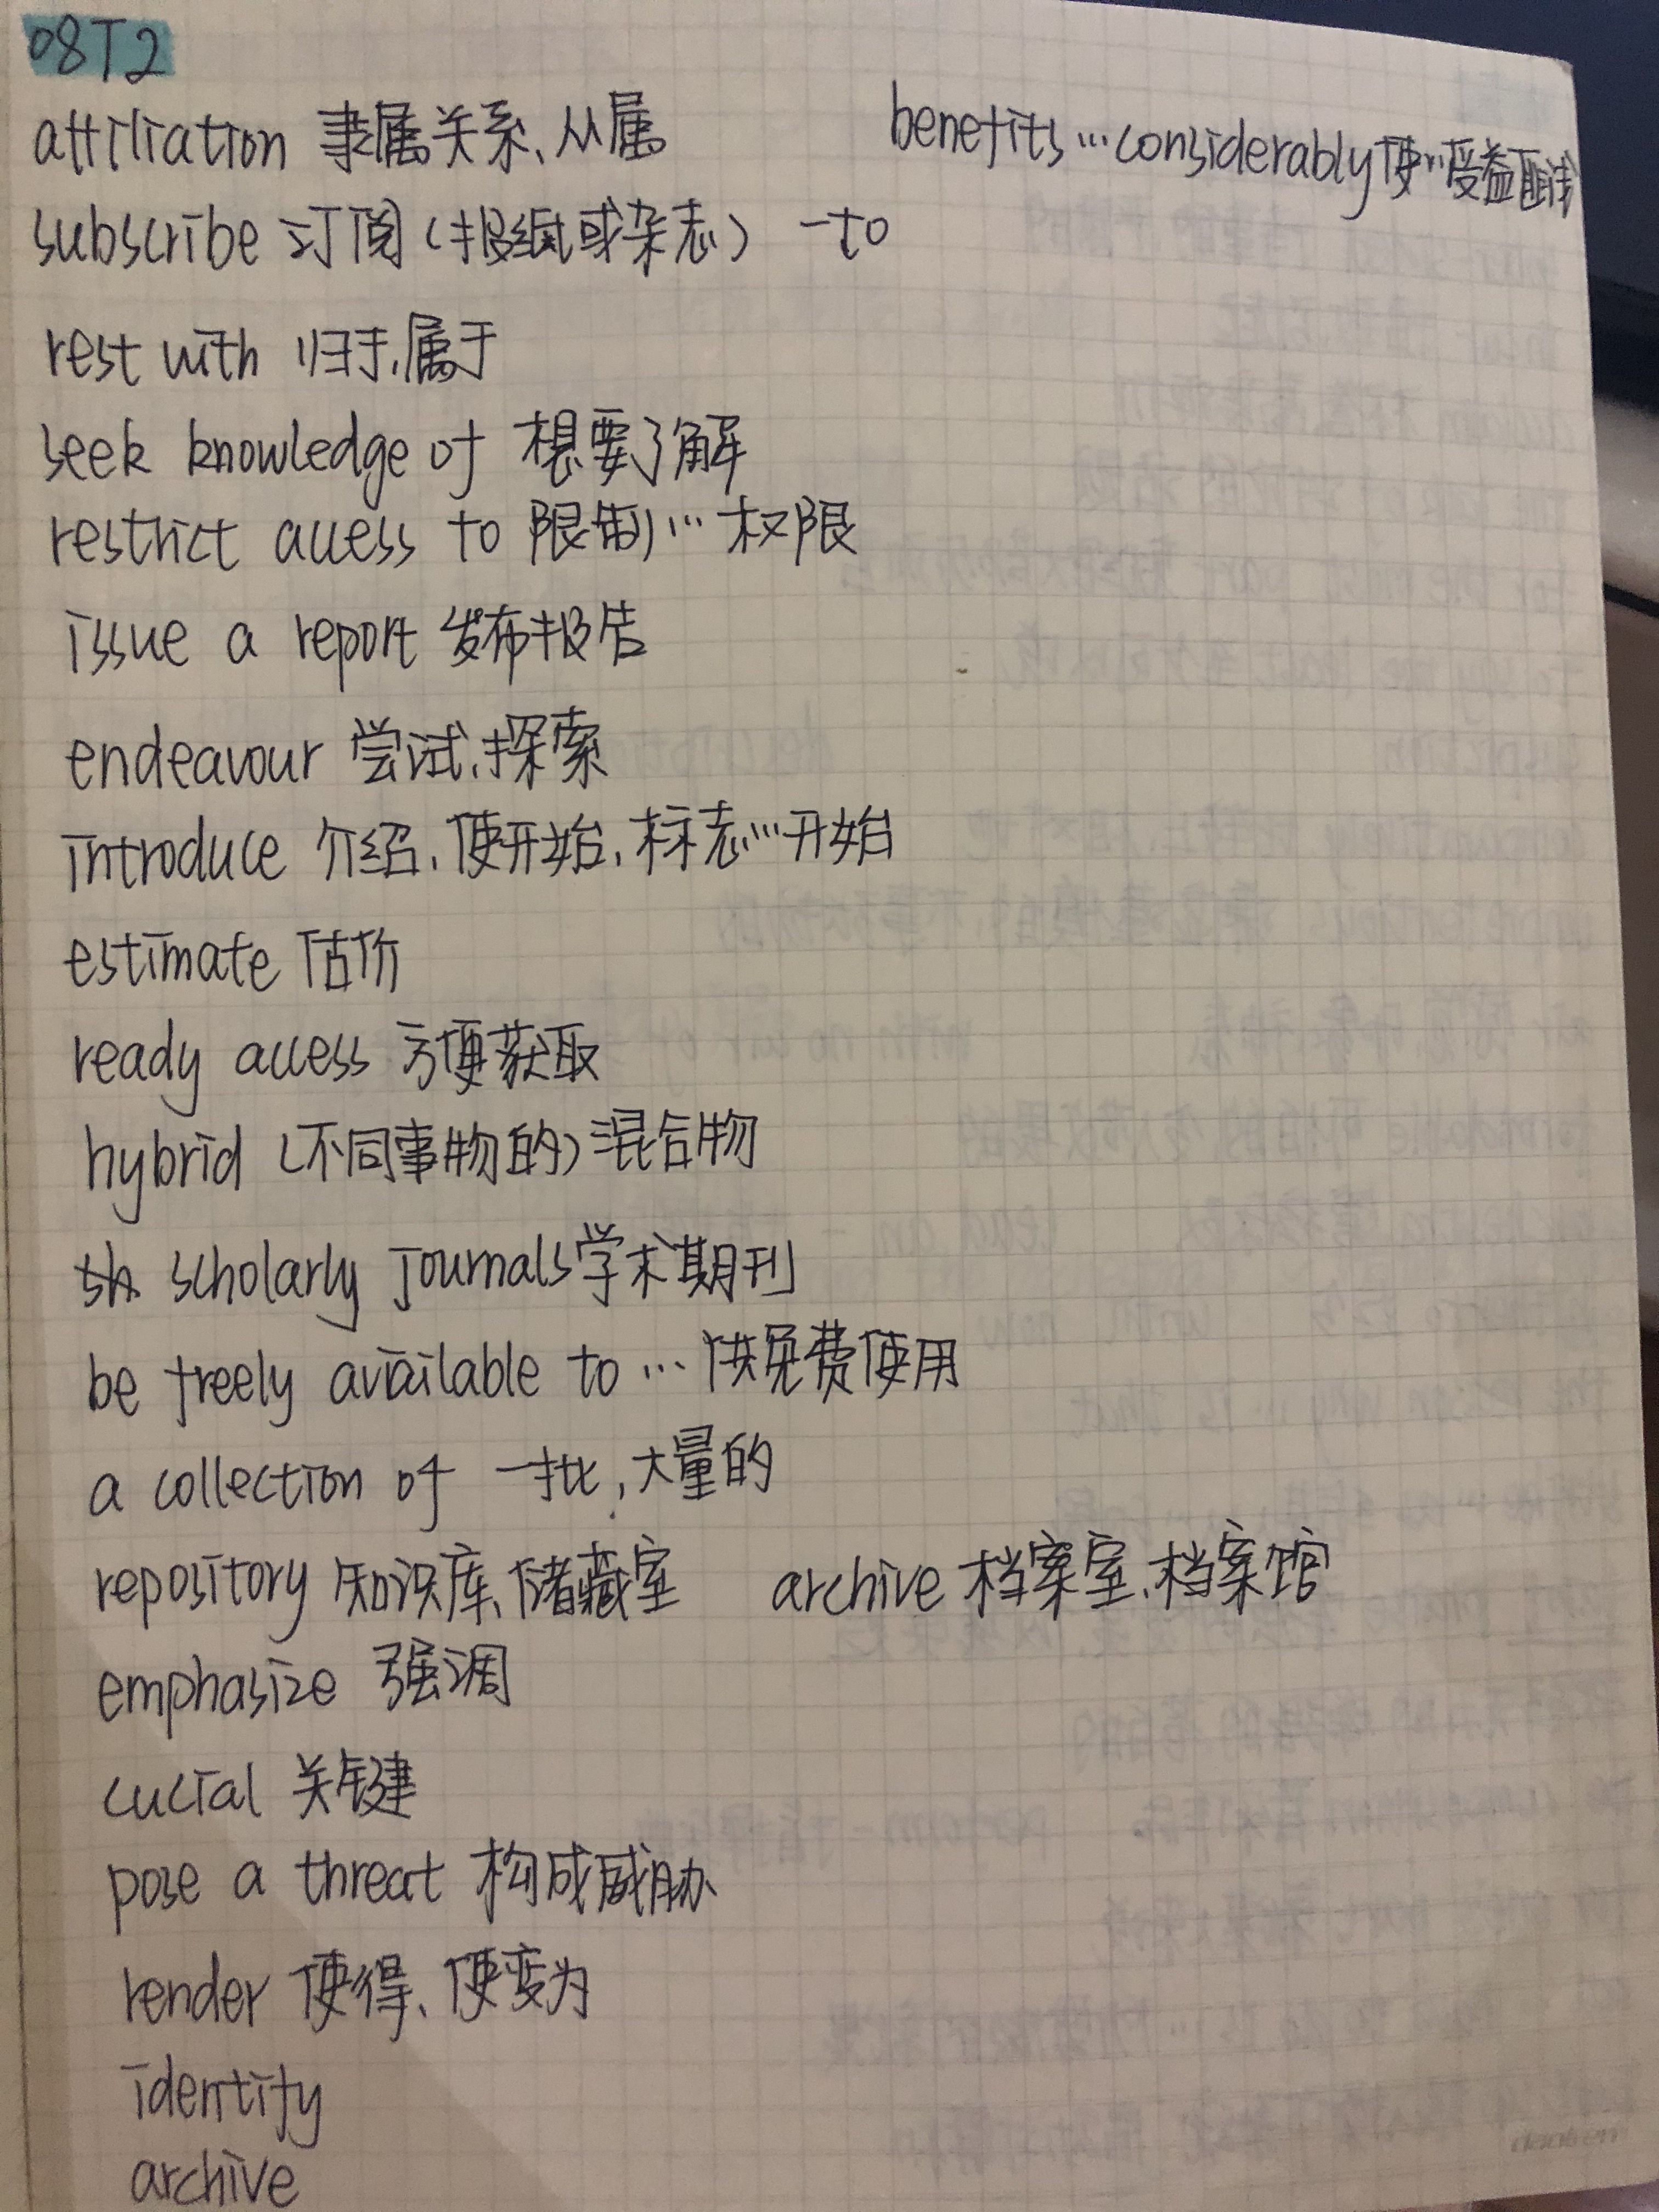 08T2
affiliation 隶属关系、从属
benefits…considerably 使…受益匪浅
subscribe 订阅（报纸或杂志） —to
rest with 归于,属于
seek knowledge of 想要了解
restrict access to 限制…权限
issue a report 发布报告
endeavour 尝试,探索
introduce 介绍,使开始,标志…开始
estimate 估价
ready access 方便获取
hybrid（不同事物的）混合物
scholarly journals 学术期刊
be freely available to …供免费使用
a collection of 一批,大量的
repository 知识库、储藏室 archive 档案室、档案馆
emphasize 强调
cucial 关键
pose a threat 构成威胁
render 使得、使变为
identify
archive